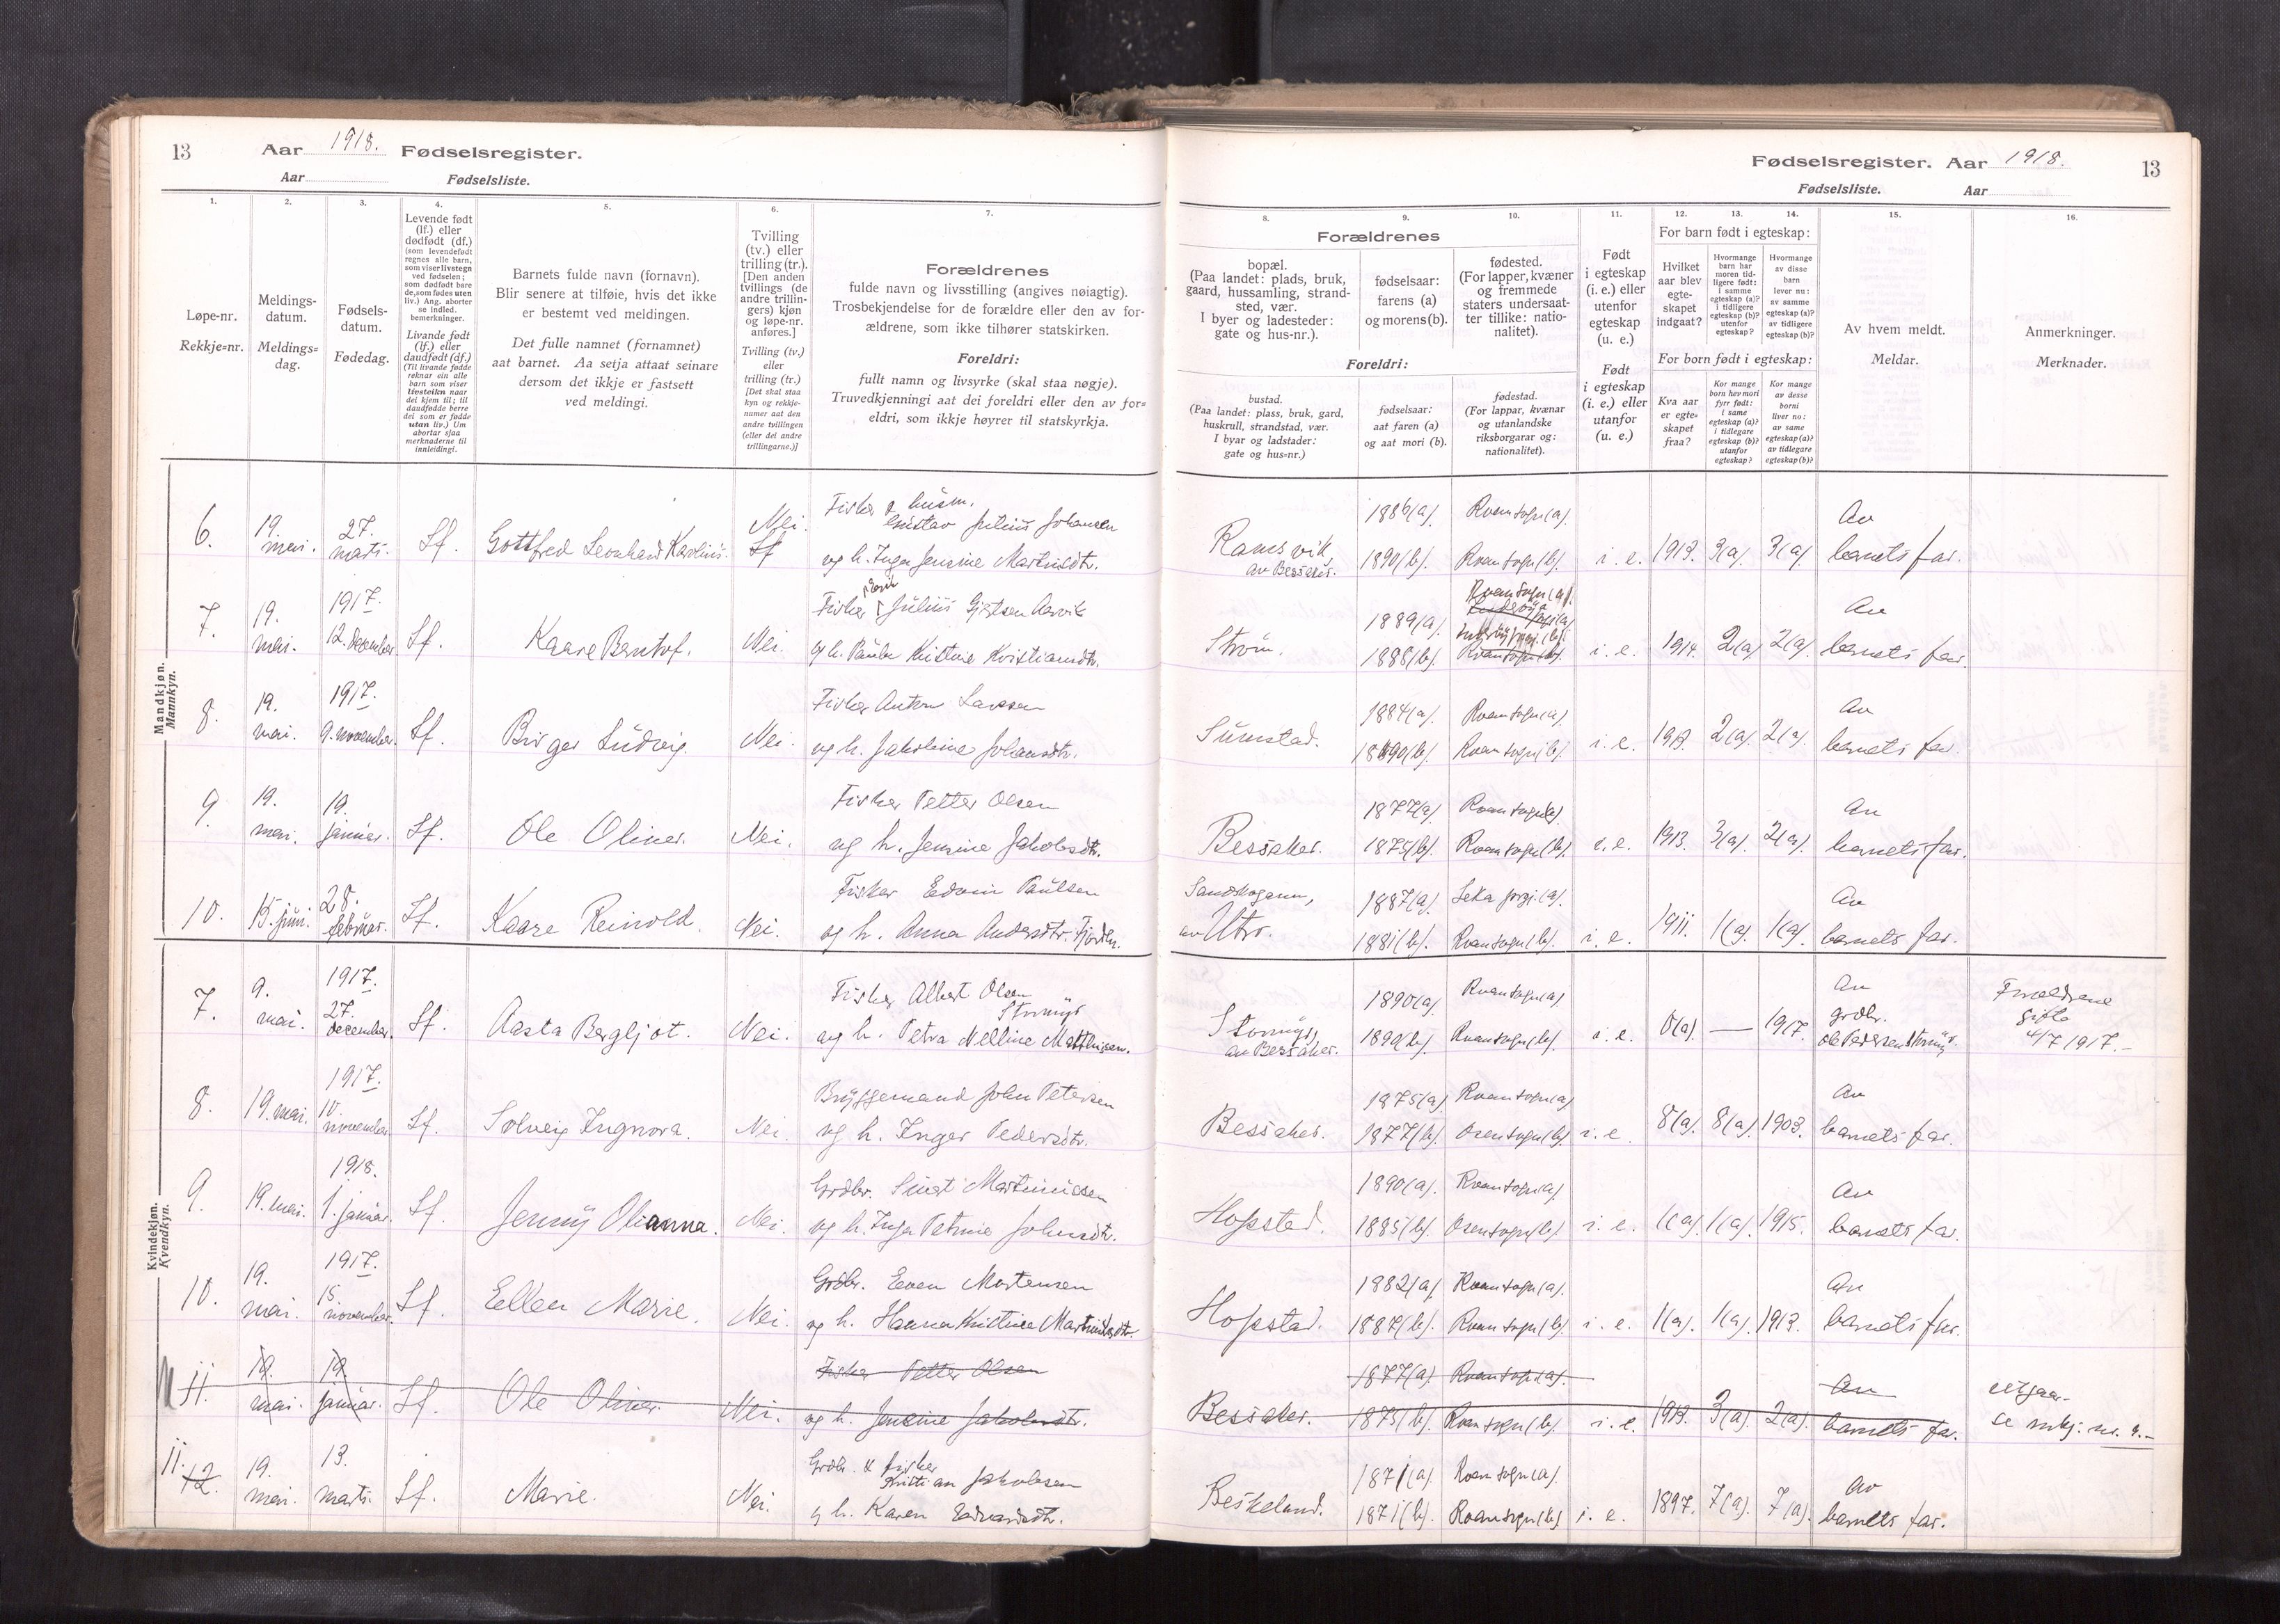 13 Aar 1918. Fødselsregister.
Aar Fødselsliste.
1.
2.
3.
4.
5.
6.
7.
Løpe-nr.
Rekkje=nr.
Meldings-
datum.
Meldings=
dag.
Fødsels-
datum.
Fødedag.
Levende født
(lf.) eller
dødfødt (df.)
(som levendefødt
regnes alle barn,
som viser livstegn
ved fødselen;
som dødfødt bare
de, som fødes uten
liv.) Ang. aborter
se indled.
bemerkninger.
Livande født
(lf.) eller
daudfødt (df.)
(Til livande fødde
reknar ein alle
barn som viser
livsteikn naar
dei kjem til; til
daudfødde berre
dei som er fødde
utan liv.) Um
abortar sjaa
merknaderne til
innleidingi.
Barnets fulde navn (fornavn).
Blir senere at tilføie, hvis det ikke
er bestemt ved meldingen.
Det fulle namnet (fornamnet)
aat barnet. Aa setja attaat seinare
dersom det ikkje er fastsett
ved meldingi.
Tvilling
(tv.) eller
trilling (tr.).
[Den anden
tvillings (de
andre trillin-
gers) kjøn
og løpe-nr.
anføres.]
Tvilling (tv.)
eller
trilling (tr.)
[Det skal staa
kyn og rekkje-
numer aat den
andre tvillingen
(eller dei andre
trillingarne.)]
Forældrenes
fulde navn og livsstilling (angives nøiagtig).
Trosbekjendelse for de forældre eller den av for-
ældrene, som ikke tilhører statskirken.
Foreldri:
fullt namn og livsyrke (skal staa nøgje).
Truvedkjenningi aat dei foreldri eller den av for=
eldri, som ikkje høyrer til statskyrkja.
Mandkjøn.
Mannkyn.
6.
19.
mai.
27.
marts.
Lf.
Gottfred Leonhard Karolius.
Nei.
Lf
Fisker & husm.
Gustav Julius Johansen
og h. Inga Jensine Martinsdtr.
7.
19.
mai.
1917.
12. december.
Lf.
Kaare Berntof.
Nei.
Fisker Julius Gjertsen Aarvik
og h. Paula Kristine Kristiansdtr.
8.
19.
mai.
1917.
9. november.
Lf.
Birger Ludvig.
Nei.
Fisker Anton Larssen
og h. Jakobine Johansdtr.
9.
19.
mai.
19.
januar.
Lf.
Ole Oliver.
Nei.
Fisker Petter Olsen
og h. Jensine Jakobsdtr.
10.
15. juni.
28.
februar.
Lf.
Kaare Reinold.
Nei.
Fisker Edvin Paulsen
og h. Anna Andersdtr. Fjordh.
Kvindekjøn.
Kvendkyn.
7.
9.
mai.
1917.
27.
december.
Lf.
Aasta Bergljot.
Nei.
Fisker Albert Olsen
Stormyr
og h. Petra Nelline Matthisen.
8.
19. mai.
1917.
10.
november.
Lf.
Solveig Ingnora.
Nei.
Bryggemand John Petersen
og h. Inger Pedersdtr.
9.
19. mai.
1918.
1. januar.
Lf.
Jenny Olianna.
Nei.
Grdbr. Sivert Martinussen
og h. Inga Petrine Johnsdtr.
10.
19.
mai.
1917.
15.
november.
Lf.
Ellen Marie.
Nei.
Grdbr. Even Mortensen
og h. Hanna Kristine Martinsdtr.
11.
19.
mai.
19.
januar.
Lf.
Ole Oliver.
Nei.
Fisker Petter Olsen
og h. Jensine Jakobsdtr.
11.
12.
19.
mai.
13.
marts.
Lf.
Marie.
Nei.
Grdbr. & fisker
Kristian Jakobsen
og h. Karen Edvardsdtr.
Fødselsregister. Aar 1918. 13
Fødselsliste. Aar
8.
9.
10.
11.
12.
13.
14.
15.
16.
Forældrenes
bopæl.
(Paa landet: plads, bruk,
gaard, hussamling, strand-
sted, vær.
I byer og ladesteder:
gate og hus-nr.).
fødselsaar:
farens (a)
og morens (b).
fødested.
(For lapper, kvæner
og fremmede
staters undersaat-
ter tillike: natio-
nalitet).
Foreldri:
bustad.
(Paa landet: plass, bruk, gard,
huskrull, strandstad, vær.
I byar og ladstader:
gate og hus=nr.)
fødselsaar:
aat faren (a)
og aat mori (b).
fødestad.
(For lappar, kvænar
og utanlandske
riksborgarar og:
nationalitet).
Født
i egteskap
(i. e.) eller
utenfor
egteskap
(u. e.)
Født
i egteskap
(i. e.) eller
utanfor
(u. e.)
For barn født i egteskap:
Hvilket
aar blev
egte-
skapet
indgaat?
Hvormange
barn har
moren tid-
ligere født:
i samme
egteskap (a)?
i tidligere
egteskap (b)?
utenfor
egteskap?
Hvormange
av disse
barn
lever nu:
av samme
egteskap (a)?
av tidligere
egteskap (b)?
For born født i egteskap:
Kva aar
er egte=
skapet
fraa?
Kor mange
born hev mori
fyrr født:
i same
egteskap (a)?
i tidlegare
egteskap (b)?
utanfor
egteskap?
Kor mange
av desse
borni
liver no:
av same
egteskap (a)?
av tidlegare
egteskap (b)?
Av hvem meldt.
Meldar.
Anmerkninger.
Merknader.
Ramsvik,
av Bessaker.
1886(a).
1890(b).
Roan sogn(a).
Roan sogn(b).
i. e.
1913.
3(a).
3(a).
Av
barnets far.
Strøm.
1889(a).
1888(b).
Roan sogn(a).
Roan sogn(b).
i. e.
1914.
2(a).
2(a).
Av
barnets far.
Sumstad.
1884(a).
1890(b).
Roan sogn(a).
Roan sogn(b).
i. e.
1913.
2(a).
2(a).
Av
barnets far.
Bessaker.
1877(a).
1875(b).
Roan sogn(a).
Roan sogn(b).
i. e.
1913.
3(a).
2(a).
Av
barnets far.
Sandskogann,
av Utro.
1887(a).
1881(b).
Leka prgj.(a).
Roan sogn(b).
i. e.
1911.
1(a).
1(a).
Av
barnets far.
Stormyr,
av Bessaker.
1890(a).
1890(b).
Roan sogn(a)
Roan sogn(b).
i. e.
0(a).
—
1917.
Av
grdbr.
Ole Pedersen Stormyr.
Forældrene
gifte
4/7 1917.-
Bessaker.
1875(a).
1877(b).
Roan sogn(a)
Osen sogn(b).
i. e.
8(a).
8(a).
1903.
Av
barnets far.
Hopstad.
1890(a).
1885(b).
Roan sogn(a).
Osen sogn(b).
i. e.
1(a).
1(a).
1915.
Av
barnets far.
Hopstad.
1882(a).
1887(b).
Roan sogn(a).
Roan sogn(b).
i. e.
1(a).
1(a).
1913.
Av
barnets far.
Bessaker.
1877(a).
1875(b).
Roan sogn(a).
Roan sogn(b).
i. e.
1913.
3(a).
2(a).
Av
barnets far.
utgaar-
se mkj. nr. 9.-
Beskeland.
1871(a).
1871(b).
Roan sogn(a).
Roan sogn(b).
i. e.
1897.
7(a).
7(a).
Av
barnets far.